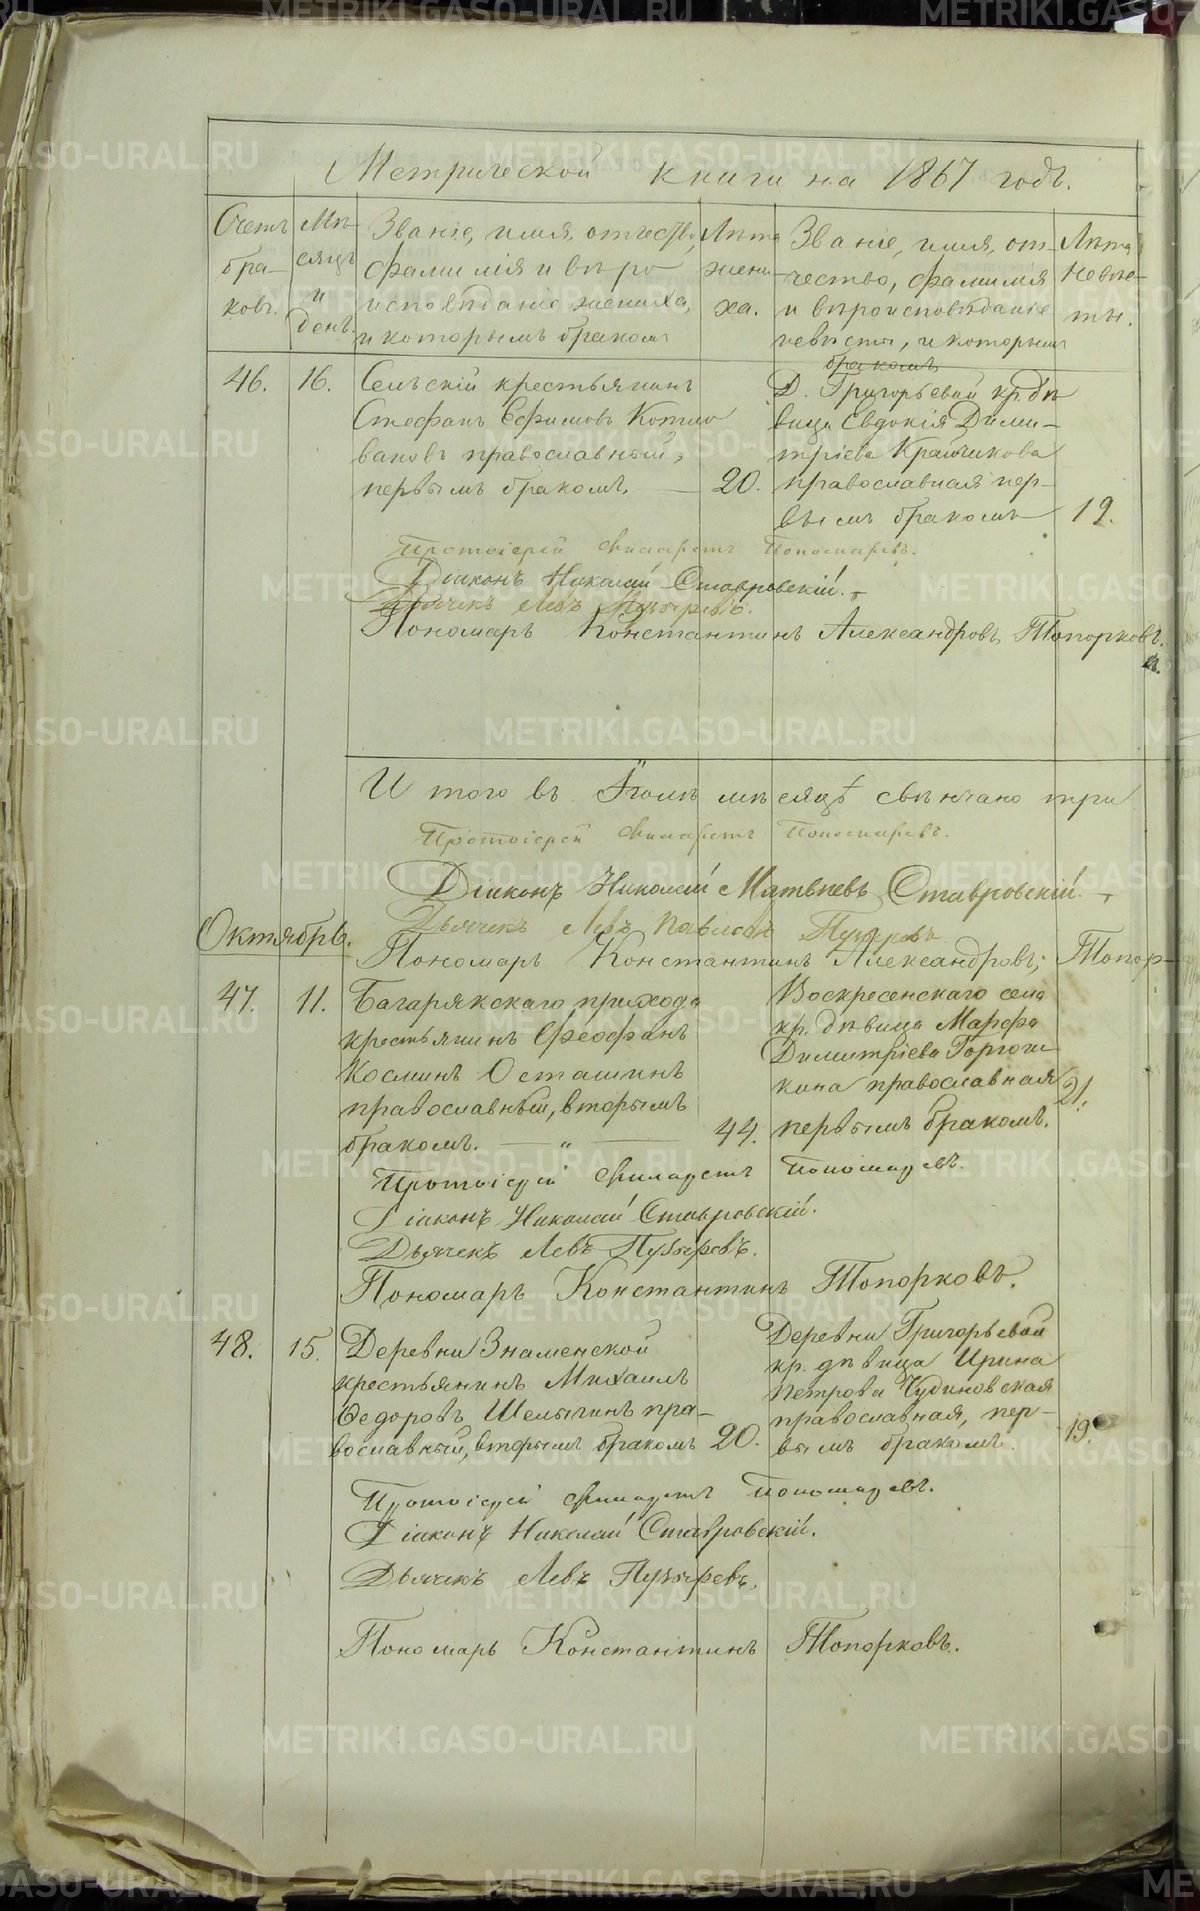 Метрической книги на 1867 годъ.
Счетъ бра- ковъ.
Мѣ- сяцъ и день.
Званіе, имя, отчество,
фамилія и вѣро
исповѣданіе жениха,
и которымъ бракомъ
Лѣта жени- ха.
Званіе, имя, от-
чество, фамилія
и вѣроисповѣданіе
невѣсты, и которымъ
бракомъ
Лѣта невѣс- ты.
46. 16.
Сельскій крестьянинъ
Стефанъ Ефимовъ Котло
вановъ православный,
первымъ бракомъ. 20.
Д. Григорьевой кр. дѣ
вица Евдокія Дими-
тріева
православная пер-
вымъ бракомъ 19.
Протоіерей Филаретъ Пономаревъ.
Діаконъ Николай Ставровскій.
Дьячекъ Левъ Пузыревъ.
Пономарь Константинъ Александровъ Топорковъ.
Итого въ Іюлѣ мѣсяцѣ свѣнчано три
Протоіерей Филаретъ Пономаревъ.
Діаконъ Николай Матвѣевъ Ставровскій.
Дьячекъ Левъ Павловъ Пузыревъ
Октябрь.
Пономарь Константинъ Александровъ Топор-
47. 11.
Багарякскаго прихода
крестьянинъ Феофанъ
Косминъ Осташинъ
православный, вторымъ
бракомъ. — „ — 44.
Воскресенскаго села
кр. дѣвица Марфа
Димитріева
кина православная 21.
первымъ бракомъ.
Протоіерей Филаретъ Пономаревъ.
Діаконъ Николай Ставровскій.
Дьячекъ Левъ Пузыревъ.
Пономарь Константинъ Топорковъ.
48. 15.
Деревни Знаменской
крестьянинъ Михаилъ
Ѳедоровъ Шелыгинъ пра-
вославный, вторымъ бракомъ 20.
Деревни Григорьевой
кр. дѣвица Ирина
Петрова Чудиновская
православная, пер-
вымъ бракомъ 19.
Протоіерей Филаретъ Пономаревъ.
Діаконъ Николай Ставровскій.
Дьячекъ Левъ Пузыревъ.
Пономарь Константинъ Топорковъ.
METRIKI.GASO-URAL.RU